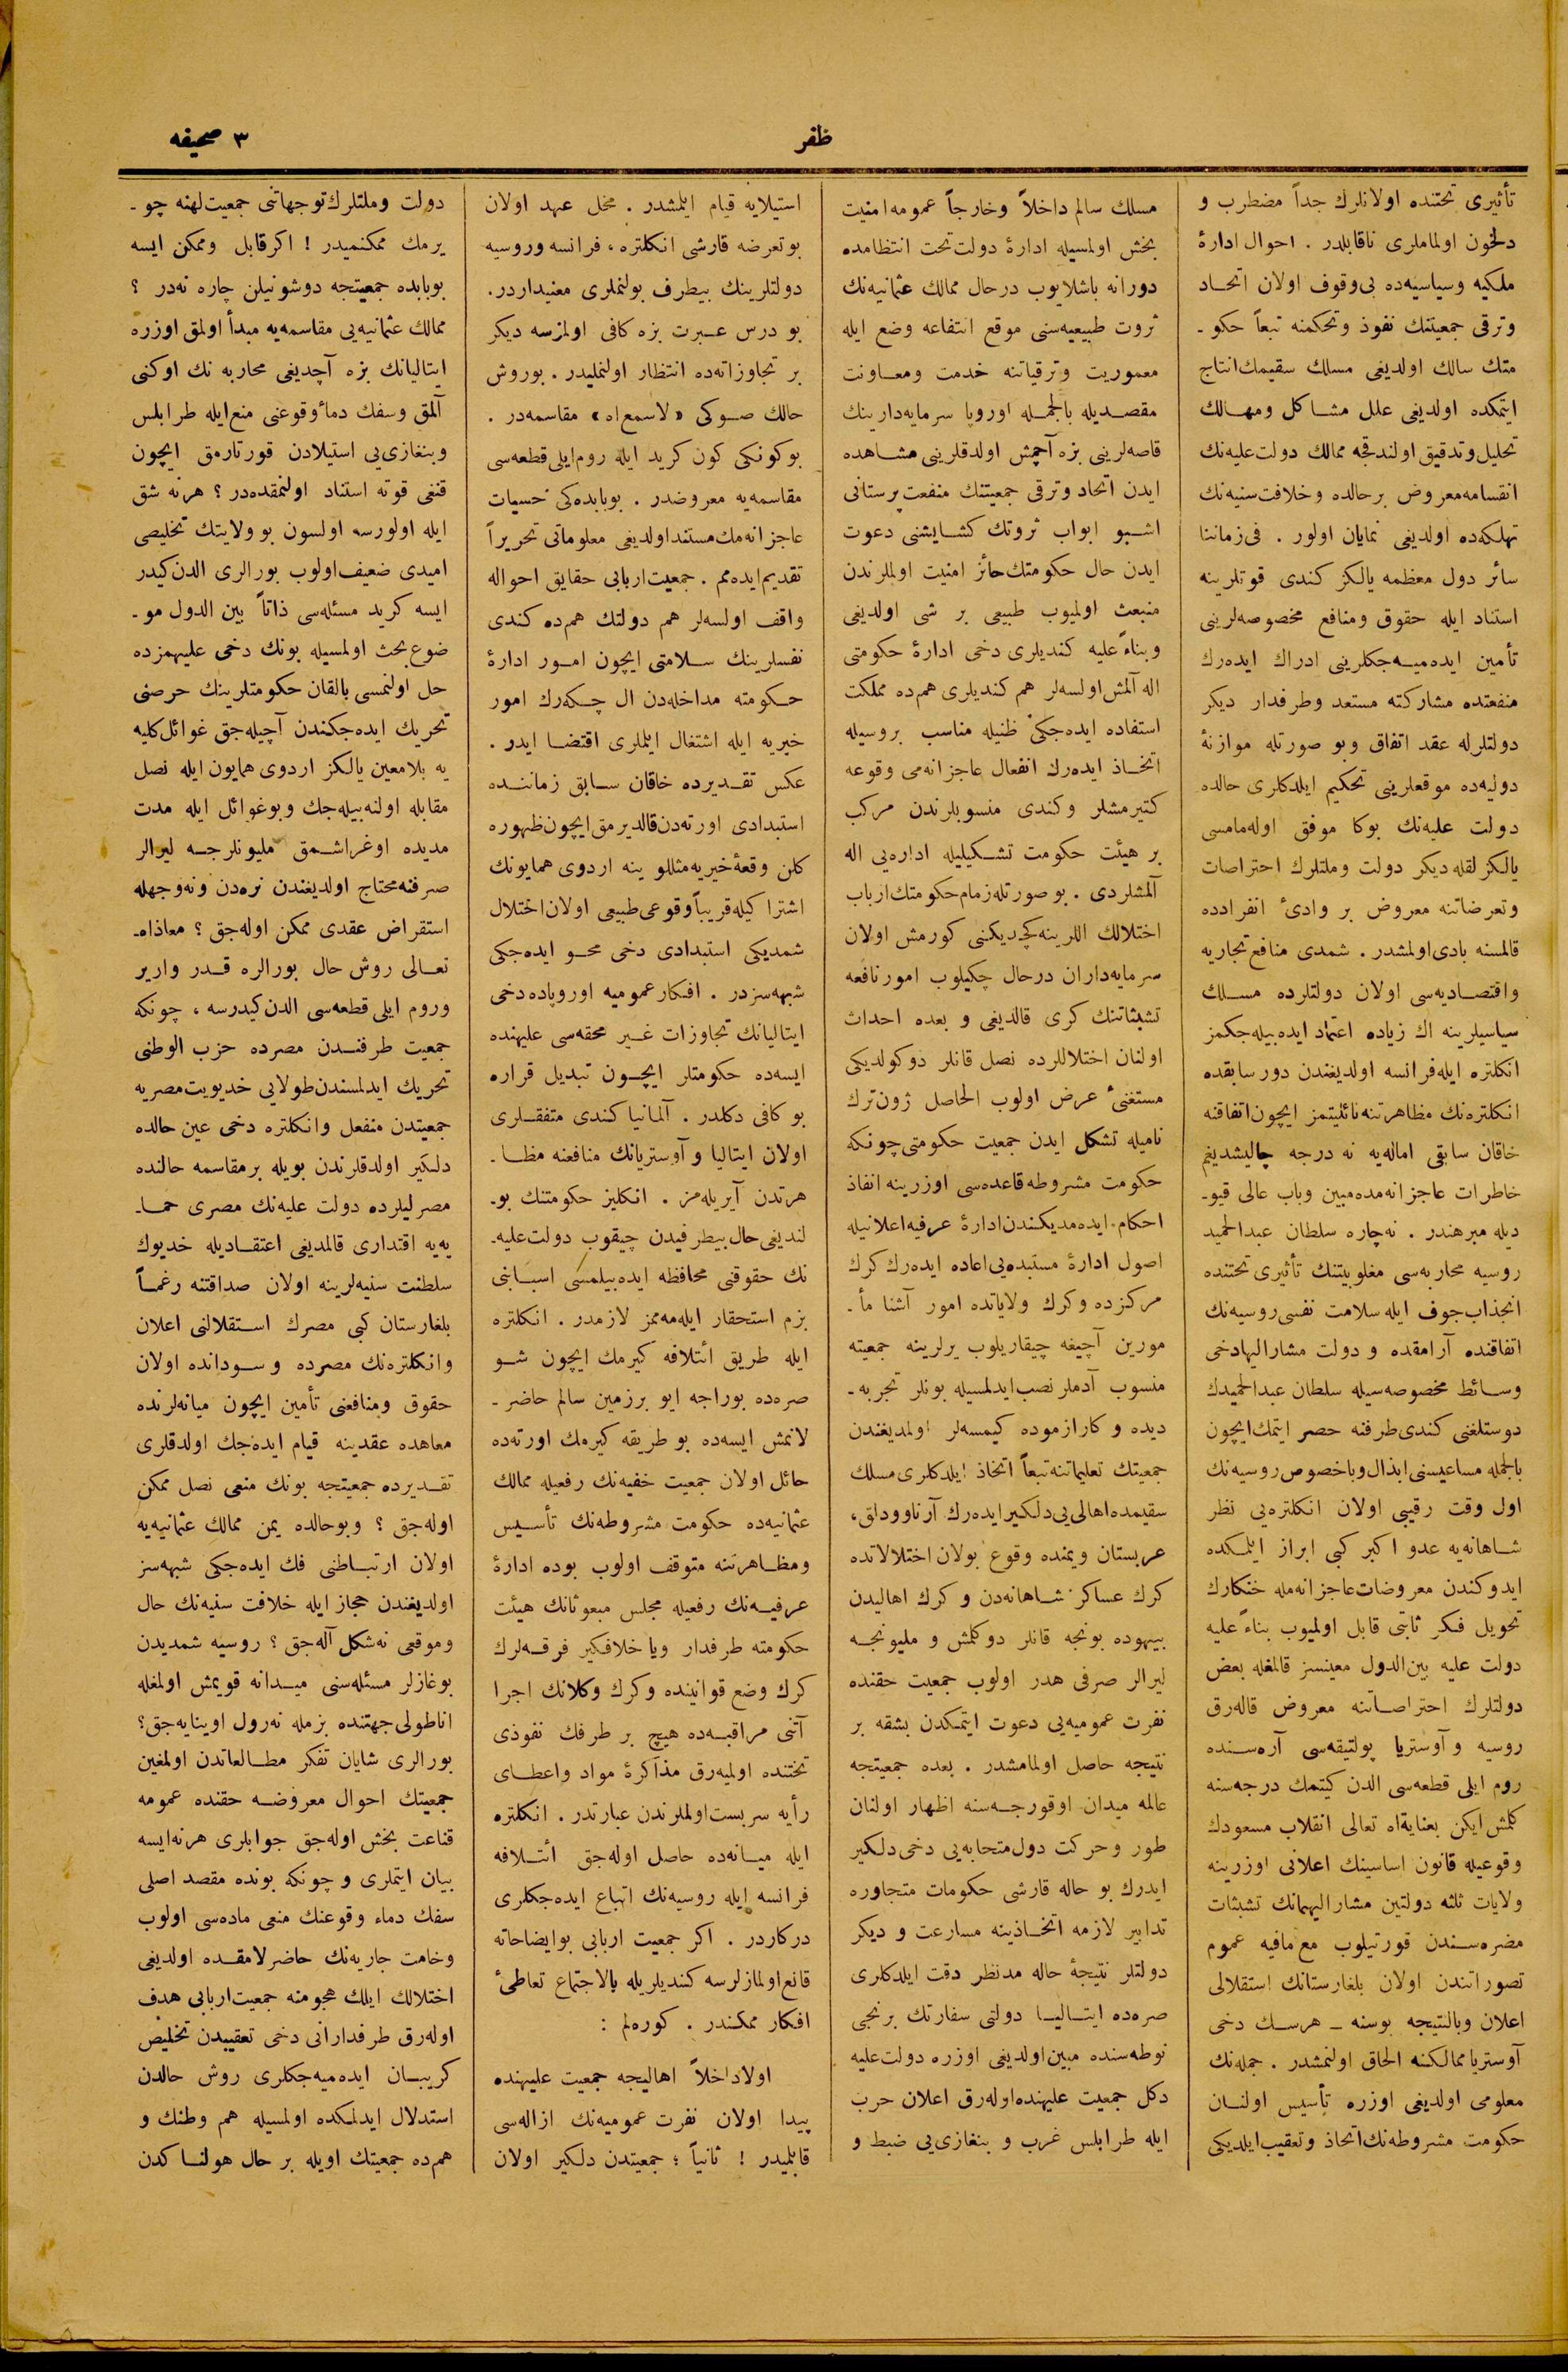 ٣ صحیفه
ظفر
تأثیری تحتنده اولانلرك جداً مضطرب و
دلخون اولماملری ناقابلدر . احوال ادارۀ
ملکیه وسیاسیه‌ده بی‌وقوف اولان اتحاد
وترقی جمعیتنك نفوذ وتحکمنه تبعاً حکو -
متك سالك اولدیغی مسلك سقیمك انتاج
ایتمکده اولدیغی علل مشاکل ومهالك
تحلیل وتدقیق اولندقجه ممالك دولت علیه‌نك
انقسامه معروض برحالده وخلافت سنیه‌نك
تهلکه‌ده اولدیغی نمایان اولور . فی زماننا
سائر دول معظمه یالکز کندی قوتلرینه
استناد ایله حقوق ومنافع مخصوصه‌لرینی
تأمین ایده‌میه‌جکلرینی ادراك ایده‌رك
منفعتده مشارکته مستعد وطرفدار دیکر
دولتلرله عقد اتفاق وبو صورتله موازنۀ
دولیه‌ده موقعلرینی تحکیم ایلدکلری حالده
دولت علیه‌نك بوکا موفق اوله‌مامسی
یالکزلقله دیکر دولت وملتلرك احتراصات
وتعرضاتنه معروض بر وادئ انفرادده
قالمسنه بادی اولمشدر . شمدی منافع تجاریه
واقتصادیه‌سی اولان دولتلرده مسلك
سیاسیلرینه اك زیاده اعتماد ایده‌بیله‌جکمز
انکلتره ایله فرانسه اولدیغندن دور سابقده
انکلتره‌نك مظاهرتنه نائلیتمز ایچون اتفاقنه
خاقان سابقی اماله‌یه نه درجه چالیشدیغم
خاطرات عاجزانه‌مده مبین وباب عالی قیو-
دیله مبرهندر . نه‌چاره سلطان عبدالحمید
روسیه محاربه‌سی مغلوبیتنك تأثیری تحتنده
انجذاب جوف ایله سلامت نفسی روسیه‌نك
اتفاقنده آرامقده و دولت مشارالیهادخی
وسائط مخصوصه‌سیله سلطان عبدالحمیدك
دوستلغنی کندی طرفنه حصر ایتمك ایچون
بالجمله مساعیسنی ابذال وباخصوص روسیه‌نك
اول وقت رقیبی اولان انکلتره‌یی نظر
شاهانه‌یه عدو اکبر کبی ابراز ایلمکده
ایدوکندن معروضات عاجزانه‌مله خنکارك
تحویل فکر ثابتی قابل اولمیوب بناءً علیه
دولت علیه بین‌الدول معینسز قالمغله بعض
دولتلرك احتراصاتنه معروض قاله‌رق
روسیه و آوستریا پولتیقه‌سی آره‌سنده
روم ایلی قطعه‌سی الدن کیتمك درجه‌سنه
کلمش ایکن بعنایة‌اه تعالی انقلاب مسعودك
وقوعیله قانون اساسینك اعلانی اوزرینه
ولایات ثلثه دولتین مشارالیهمانك تشبثات
مضره‌سندن قورتیلوب مع مافیه عموم
تصوراتندن اولان بلغارستانك استقلالی
اعلان وبالنتیجه بوسنه - هرسك دخی
آوستریا ممالکنه الحاق اولنمشدر . جمله‌نك
معلومی اولدیغی اوزره تأسیس اولنان
حکومت مشروطه‌نك اتخاذ وتعقیب ایلدیکی
مسلك سالم داخلاً وخارجاً عمومه امنیت
بخش اولمسیله ادارۀ دولت تحت انتظامده
دورانه باشلایوب درحال ممالك عثمانیه‌نك
ثروت طبیعیه‌سنی موقع انتفاعه وضع ایله
معموریت وترقیاتنه خدمت ومعاونت
مقصدیله بالجمله اوروپا سرمایه‌دارینك
قاصه‌لرینی بزه آچمش اولدقلرینی مشاهده
ایدن اتحاد وترقی جمعیتنك منفعت پرستانی
اشبو ابواب ثروتك کشایشنی دعوت
ایدن حال حکومتك حائز امنیت اولملرندن
منبعث اولمیوب طبیعی بر شی اولدیغی
وبناءً علیه کندیلری دخی ادارۀ حکومتی
اله آلمش اولسه‌لر هم کندیلری هم‌ده مملکت
استفاده ایده‌جکی ظنیله مناسب بروسیله
اتخاذ ایده‌رك انفعال عاجزانه‌می وقوعه
کتیرمشلر وکندی منسوبلرندن مرکب
بر هیئت حکومت تشکیلیله اداره‌یی اله
آلمشلردی . بو صورتله زمام حکومتك ارباب
اختلالك اللرینه کچدیکنی کورمش اولان
سرمایه‌داران درحال چکیلوب امور نافعه
تشبثاتنك کری قالدیغی و بعده احداث
اولنان اختلاللرده نصل قانلر دوکولدیکی
مستغنئ عرض اولوب الحاصل ژون ترك
نامیله تشکل ایدن جمعیت حکومتی چونکه
حکومت مشروطه قاعده‌سی اوزرینه انفاذ
احکام ایده‌مدیکندن ادارۀ عرفیه اعلانیله
اصول ادارۀ مستبده‌یی اعاده ایده‌رك کرك
مرکزده وکرك ولایاتده امور آشنا مأ -
مورین آچیغه چیقاریلوب یرلرینه جمعیته
منسوب آدملر نصب ایدلمسیله بونلر تجربه -
دیده و کارازموده کیمسه‌لر اولمدیغندن
جمعیتك تعلیماتنه تبعاً اتخاذ ایلدکلری مسلك
سقیمده اهالی‌یی دلکیر ایده‌رك آرناوودلق،
عربستان ویمنده وقوع بولان اختلالاتده
کرك عساکر شاهانه‌دن و کرك اهالیدن
بیهوده بونجه قانلر دوکلمش و ملیونجه
لیرالر صرفی هدر اولوب جمعیت حقنده
نفرت عمومیه‌یی دعوت ایتمکدن بشقه بر
نتیجه حاصل اولمامشدر . بعده جمعیتجه
عالمه میدان اوقورجه‌سنه اظهار اولنان
طور وحرکت دول متحابه‌یی دخی دلکیر
ایدرك بو حاله قارشی حکومات متجاوره
تدابیر لازمه اتخاذینه مسارعت و دیکر
دولتلر نتیجۀ حاله مدنظر دقت ایلدکلری
صره‌ده ایتالیا دولتی سفارتك برنجی
نوطه‌سنده مبین اولدیغی اوزره دولت علیه
دکل جمعیت علیهنده اوله‌رق اعلان حرب
ایله طرابلس غرب و بنغازی‌یی ضبط و
استیلایه قیام ایلمشدر . مخل عهد اولان
بوتعرضه قارشی انکلتره ، فرانسه وروسیه
دولتلرینك بیطرف بولنملری معنیداردر.
بو درس عبرت بزه کافی اولمزسه دیکر
بر تجاوزاته‌ده انتظار اولنملیدر . بوروش
حالك صوکی «لاسمح‌اه» مقاسمه‌در .
بوکونکی کون کرید ایله روم‌ایلی قطعه‌سی
مقاسمه‌یه معروضدر . بوبابده‌کی حسیات
عاجزانه‌مك مستند اولدیغی معلوماتی تحریراً
تقدیم ایده‌مم . جمعیت اربابی حقایق احواله
واقف اولسه‌لر هم دولتك هم‌ده کندی
نفسلرینك سلامتی ایچون امور ادارۀ
حکومته مداخله‌دن ال چکه‌رك امور
خیریه ایله اشتغال ایلملری اقتضا ایدر .
عکس تقدیرده خاقان سابق زماننده
استبدادی اورته‌دن قالدیرمق ایچون ظهوره
کلن وقعۀ خیریه مثللو ینه اردوی همایونك
اشتراکیله قریباً وقوعی طبیعی اولان اختلال
شمدیکی استبدادی دخی محو ایده‌جکی
شبهه‌سزدر . افکار عمومیه اوروپاده دخی
ایتالیانك تجاوزات غیر محقه‌سی علیهنده
ایسه‌ده حکومتلر ایچون تبدیل قراره
بو کافی دکلدر . آلمانیا کندی متفقلری
اولان ایتالیا و آوستریانك منافعنه مظا -
هرتدن آیریله‌مز . انکلیز حکومتنك بو-
لندیغی حال بیطرفیدن چیقوب دولت علیه-
نك حقوقنی محافظه ایده‌بیلمسی اسبابنی
بزم استحقار ایله‌مه‌مز لازمدر . انکلتره
ایله طریق ائتلافه کیرمك ایچون شو
صره‌ده بوراجه ایو برزمین سالم حاضر -
لانمش ایسه‌ده بو طریقه کیرمك اورته‌ده
حائل اولان جمعیت خفیه‌نك رفعیله ممالك
عثمانیه‌ده حکومت مشروطه‌نك تأسیس
ومظاهرتنه متوقف اولوب بوده ادارۀ
عرفیه‌نك رفعیله مجلس مبعوثانك هیئت
حکومته طرفدار ویا خلافکیر فرقه‌لرك
کرك وضع قوانینده وکرك وکلانك اجرا
آتنی مراقبه‌ده هیچ بر طرفك نفوذی
تختنده اولمیه‌رق مذاکرۀ مواد واعطای
رأیه سربست اولملرندن عبارتدر . انکلتره
ایله میانه‌ده حاصل اوله‌جق ائتلافه
فرانسه ایله روسیه‌نك اتباع ایده‌جکلری
درکاردر . اکر جمعیت اربابی بوایضاحاته
قانع اولمازلرسه کندیلریله بالاجتماع تعاطئ
افکار ممکندر . کوره‌لم :
اولاداخلاً اهالیجه جمعیت علیهنده
پیدا اولان نفرت عمومیه‌نك ازاله‌سی
قابلمیدر ! ثانیاً ؛ جمعیتدن دلکیر اولان
دولت وملتلرك توجهاتنی جمعیت لهنه چو -
یرمك ممکنمیدر ! اکر قابل وممکن ایسه
بوبابده جمعیتجه دوشونیلن چاره نه‌در ؟
ممالك عثمانیه‌یی مقاسمه‌یه مبدأ اولمق اوزره
ایتالیانك بزه آچدیغی محاربه نك اوکنی
آلمق وسفك دمأ وقوعنی منع ایله طرابلس
وبنغازی‌یی استیلادن قورتارمق ایچون
قنغی قوته استناد اولنمقده‌در ؟ هرنه شق
ایله اولورسه اولسون بو ولایتك تخلیصی
امیدی ضعیف اولوب بورالری الدن کیدر
ایسه کرید مسئله‌سی ذاتاً بین الدول مو-
ضوع بحث اولمسیله بونك دخی علیهمزده
حل اولنمسی بالقان حکومتلرینك حرصنی
تحریك ایده‌جکندن آچیله‌جق غوائل کلیه
یه بلامعین یالکز اردوی همایون ایله نصل
مقابله اولنه‌بیله‌جك وبو غوائل ایله مدت
مدیده اوغراشمق ملیونلرجه لیرالر
صرفنه محتاج اولدیغندن نره‌دن ونه‌وجهله
استقراض عقدی ممکن اوله‌جق ؟ معاذاه-
تعالی روش حال بورالره قدر واریر
وروم ایلی قطعه‌سی الدن کیدرسه ، چونکه
جمعیت طرفندن مصرده حزب الوطنی
تحریك ایدلمسندن طولایی خدیویت مصریه
جمعیتدن منفعل وانکلتره دخی عین حالده
دلکیر اولدقلرندن بویله بر مقاسمه حالنده
مصرلیلرده دولت علیه‌نك مصری حما-
یه‌یه اقتداری قالمدیغی اعتقادیله خدیوك
سلطنت سنیه‌لرینه اولان صداقتنه رغماً
بلغارستان کبی مصرك استقلالنی اعلان
وانکلتره‌نك مصرده وسودانده اولان
حقوق ومنافعنی تأمین ایچون میانه‌لرنده
معاهده عقدینه قیام ایده‌جك اولدقلری
تقدیرده جمعیتجه بونك منعی نصل ممکن
اوله‌جق ؟ وبوحالده یمن ممالك عثمانیه‌یه
اولان ارتباطنی فك ایده‌جکی شبهه‌سز
اولدیغندن حجاز ایله خلافت سنیه‌نك حال
وموقعی نه‌شکل آله‌جق ؟ روسیه شمدیدن
بوغازلر مسئله‌سنی میدانه قویمش اولمغله
اناطولی جهتنده بزمله نه‌رول اوینایه‌جق؟
بورالری شایان تفکر مطالعاتدن اولمغین
جمعیتك احوال معروضه حقنده عمومه
قناعت بخش اوله‌جق جوابلری هرنه ایسه
بیان ایتملری و چونکه بونده مقصد اصلی
سفك دماء وقوعنك منعی ماده‌سی اولوب
وخامت جاریه‌نك حاضرلامقده اولدیغی
اختلالك ایلك هجومنه جمعیت اربابی هدف
اوله‌رق طرفدارانی دخی تعقیبدن تخلیص
کریبان ایده‌میه‌جکلری روش حالدن
استدلال ایدلمکده اولمسیله هم وطنك و
هم‌ده جمعیتك اویله بر حال هولناکدن